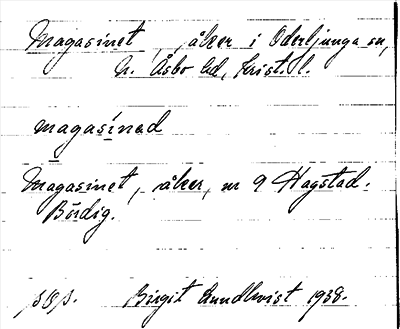 Magasinet, åker i Oderljunga sn,
N. Åsbo hd, Krist. l.
magasinəd
Magasinet, åker, nr 9 Hagstad.
Bördig.
Birgit Lundkvist 1938.